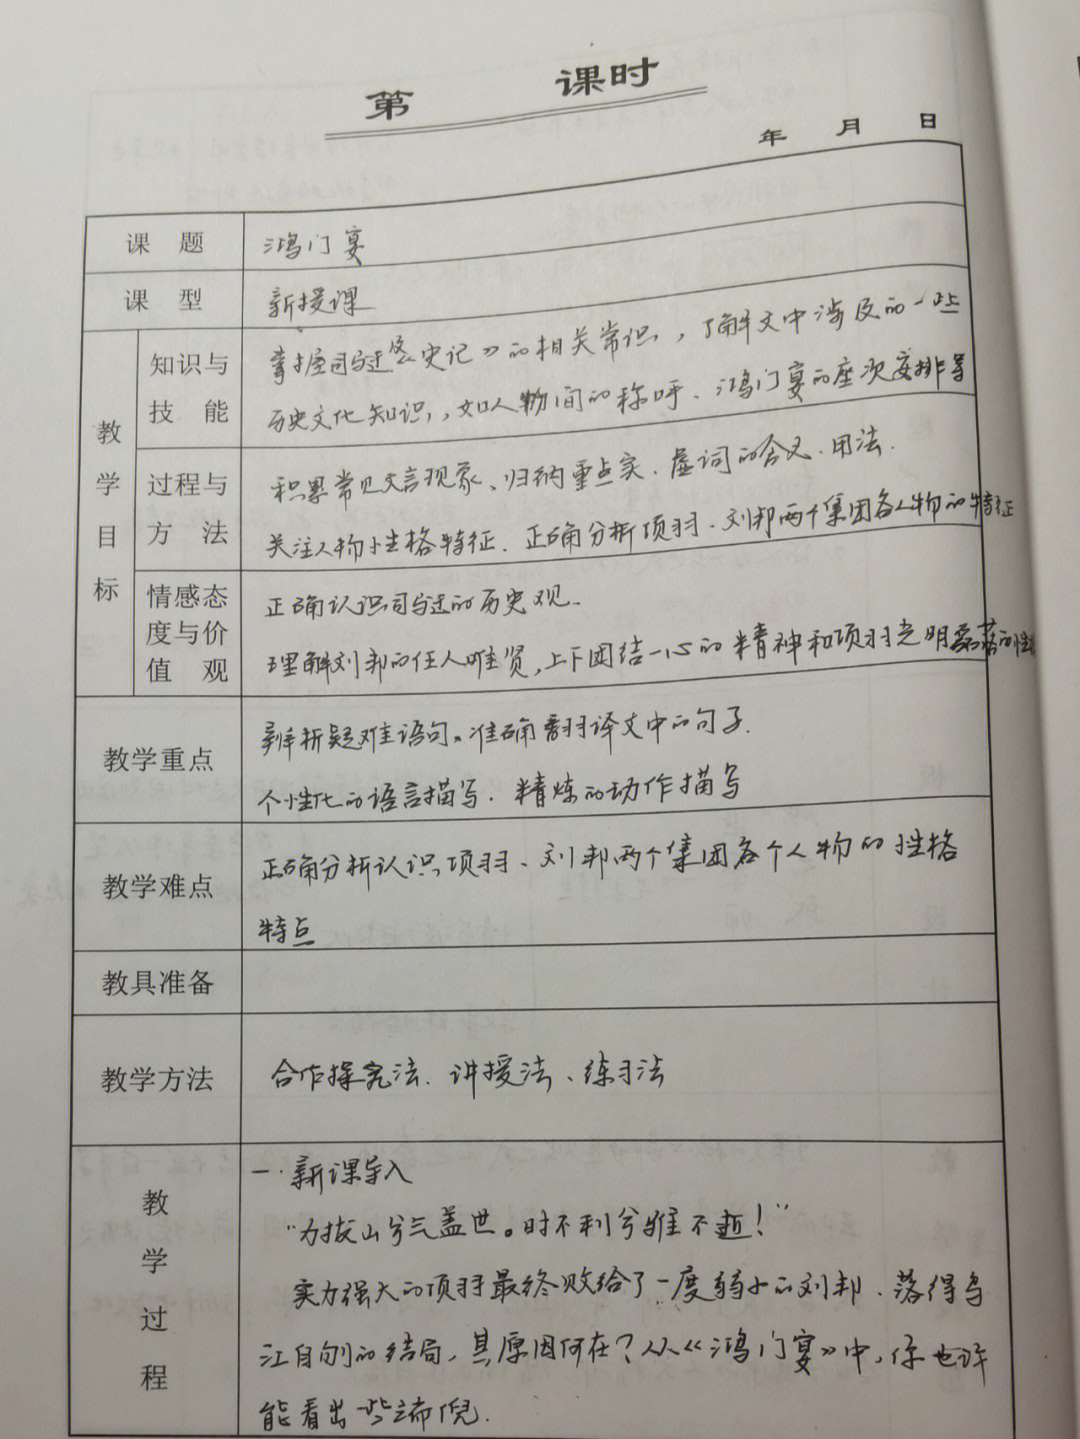 第 课时
年 月 日
课 题 鸿门宴
课 型 新授课
教学目标
知识与技 能
掌握司马迁《史记》的相关常识，了解文中涉及的一些
历史文化知识，如人物间的称呼、鸿门宴的座次安排等
过程与方 法
积累常见文言现象、归纳重点实、虚词的含义、用法.
关注人物小性格特征.正确分析项羽、刘邦两个集团各人物的特征
情感态度与价值 观
正确认识司马迁的历史观.
理解刘邦的任人唯贤,上下团结一心的精神和项羽光明磊落的性格
教学重点
辨析疑难语句。准确翻译文中的句子.
个性化的语言描写.精炼的动作描写
教学难点
正确分析认识项羽、刘邦两个集团各个人物的性格
特点
教具准备
教学方法
合作探究法.讲授法、练习法
教学过程
一.新课导入
“力拔山兮气盖世。时不利兮骓不逝！”
实力强大的项羽最终败给了一度弱小的刘邦.落得乌
江自刎的结局,其原因何在？从《鸿门宴》中,你也许
能看出一些端倪.